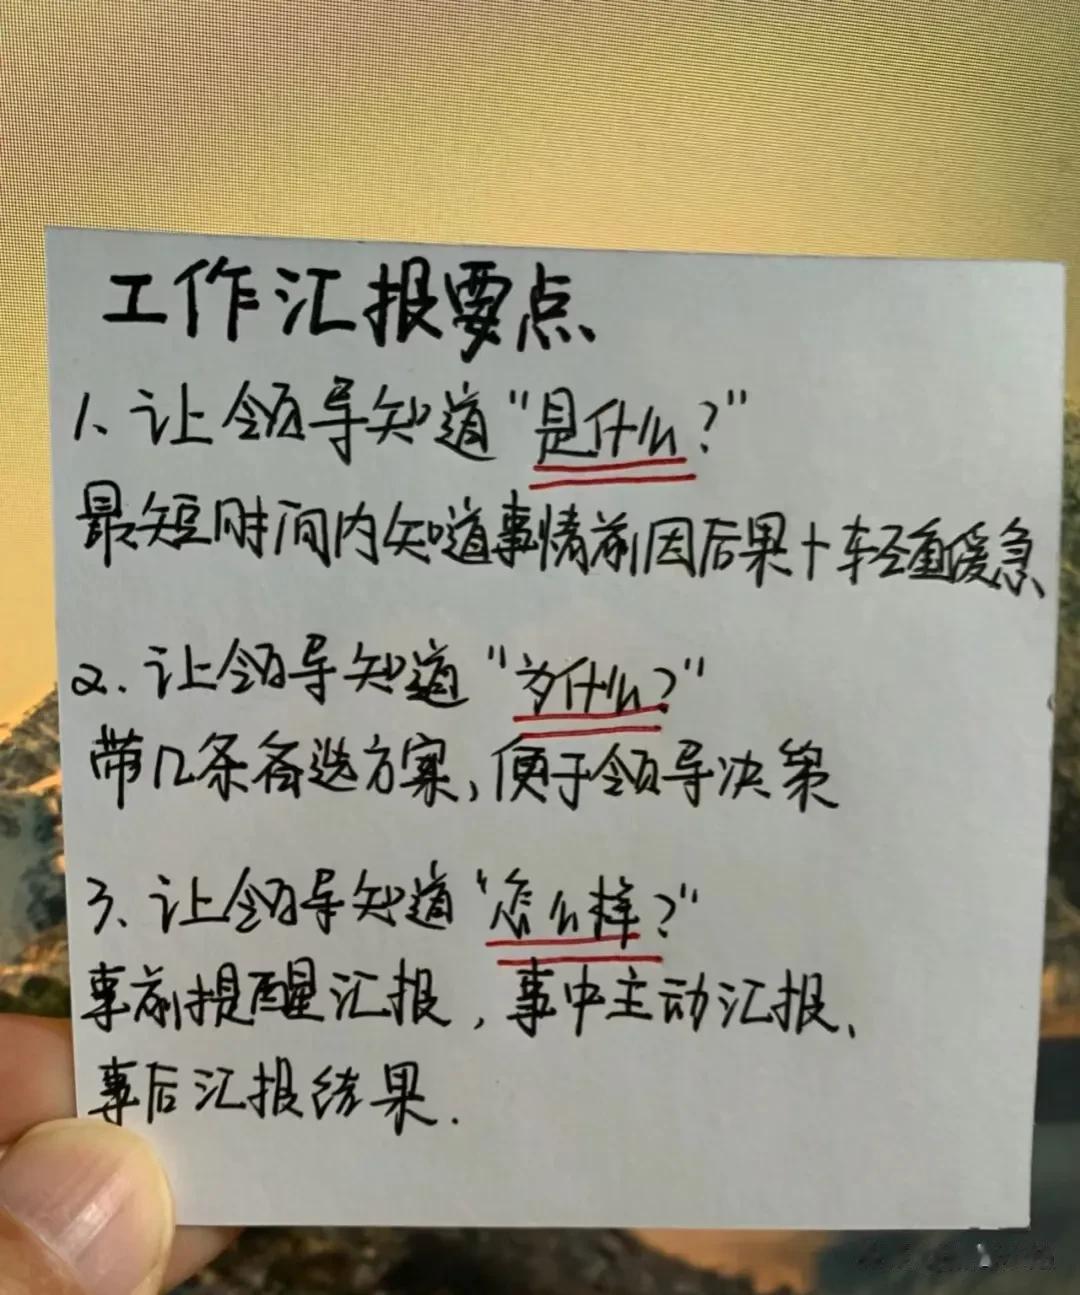 工作汇报要点
1、让领导知道“是什么?”
最短时间内知道事情前因后果+轻重缓急
2.让领导知道“为什么?”
带几条备选方案,便于领导决策
3、让领导知道“怎么样?”
事前提醒汇报,事中主动汇报、
事后汇报结果.